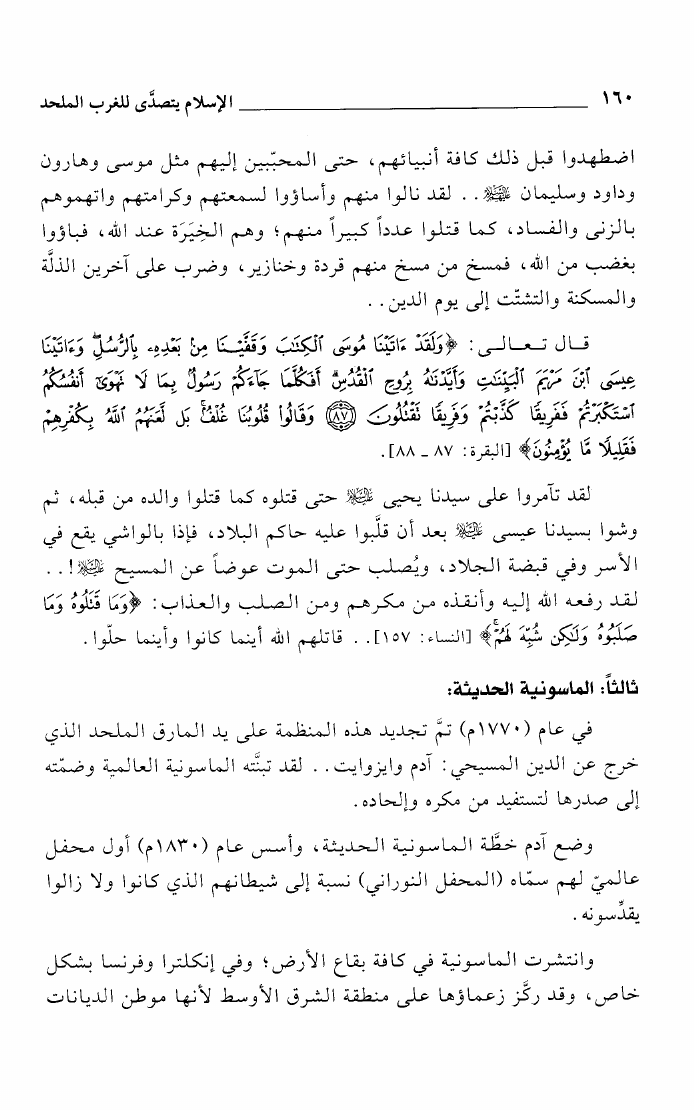 ١٦٠ الإسلام يتصدَّى للغرب الملحد
اضطهدوا قبل ذلك كافة أنبيائهم، حتى المحبّبين إليهم مثل موسى وهارون
وداود وسليمان عليهم السلام.. لقد نالوا منهم وأساؤوا لسمعتهم وكرامتهم واتهموهم
بالزنى والفساد، كما قتلوا عدداً كبيراً منهم؛ وهم الخِيَرَة عند الله، فباؤوا
بغضب من الله، فمسخ من مسخ منهم قردة وخنازير، وضرب على آخرين الذلَّة
والمسكنة والتشتّت إلى يوم الدين..
قال تعالى: ﴿وَلَقَدْ ءَاتَيْنَا مُوسَى ٱلْكِتَٰبَ وَقَفَّيْنَا مِنۢ بَعْدِهِۦ بِٱلرُّسُلِ ۖ وَءَاتَيْنَا
عِيسَى ٱبْنَ مَرْيَمَ ٱلْبَيِّنَٰتِ وَأَيَّدْنَٰهُ بِرُوحِ ٱلْقُدُسِ ۗ أَفَكُلَّمَا جَآءَكُمْ رَسُولٌۢ بِمَا لَا تَهْوَىٰٓ أَنفُسُكُمُ
ٱسْتَكْبَرْتُمْ فَفَرِيقًا كَذَّبْتُمْ وَفَرِيقًا تَقْتُلُونَ ﴿٨٧﴾ وَقَالُوا۟ قُلُوبُنَا غُلْفٌۢ ۚ بَل لَّعَنَهُمُ ٱللَّهُ بِكُفْرِهِمْ
فَقَلِيلًا مَّا يُؤْمِنُونَ﴾ [البقرة: ٨٧ - ٨٨].
لقد تآمروا على سيدنا يحيى عليه السلام حتى قتلوه كما قتلوا والده من قبله، ثم
وشوا بسيدنا عيسى عليه السلام بعد أن قلَّبوا عليه حاكم البلاد، فإذا بالواشي يقع في
الأسر وفي قبضة الجلاد، ويُصلب حتى الموت عوضاً عن المسيح عليه السلام!..
لقد رفعه الله إليه وأنقذه من مكرهم ومن الصلب والعذاب: ﴿وَمَا قَتَلُوهُ وَمَا
صَلَبُوهُ وَلَٰكِن شُبِّهَ لَهُمْ ۚ﴾ [النساء: ١٥٧].. قاتلهم الله أينما كانوا وأينما حلّوا.
ثالثاً: الماسونية الحديثة:
في عام (١٧٧٠م) تمَّ تجديد هذه المنظمة على يد المارق الملحد الذي
خرج عن الدين المسيحي: آدم وايزوايت.. لقد تبنَّته الماسونية العالمية وضمّته
إلى صدرها لتستفيد من مكره وإلحاده.
وضع آدم خطَّة الماسونية الحديثة، وأسس عام (١٨٣٠م) أول محفل
عالميّ لهم سمّاه (المحفل النوراني) نسبة إلى شيطانهم الذي كانوا ولا زالوا
يقدِّسونه.
وانتشرت الماسونية في كافة بقاع الأرض؛ وفي إنكلترا وفرنسا بشكل
خاص، وقد ركَّز زعماؤها على منطقة الشرق الأوسط لأنها موطن الديانات